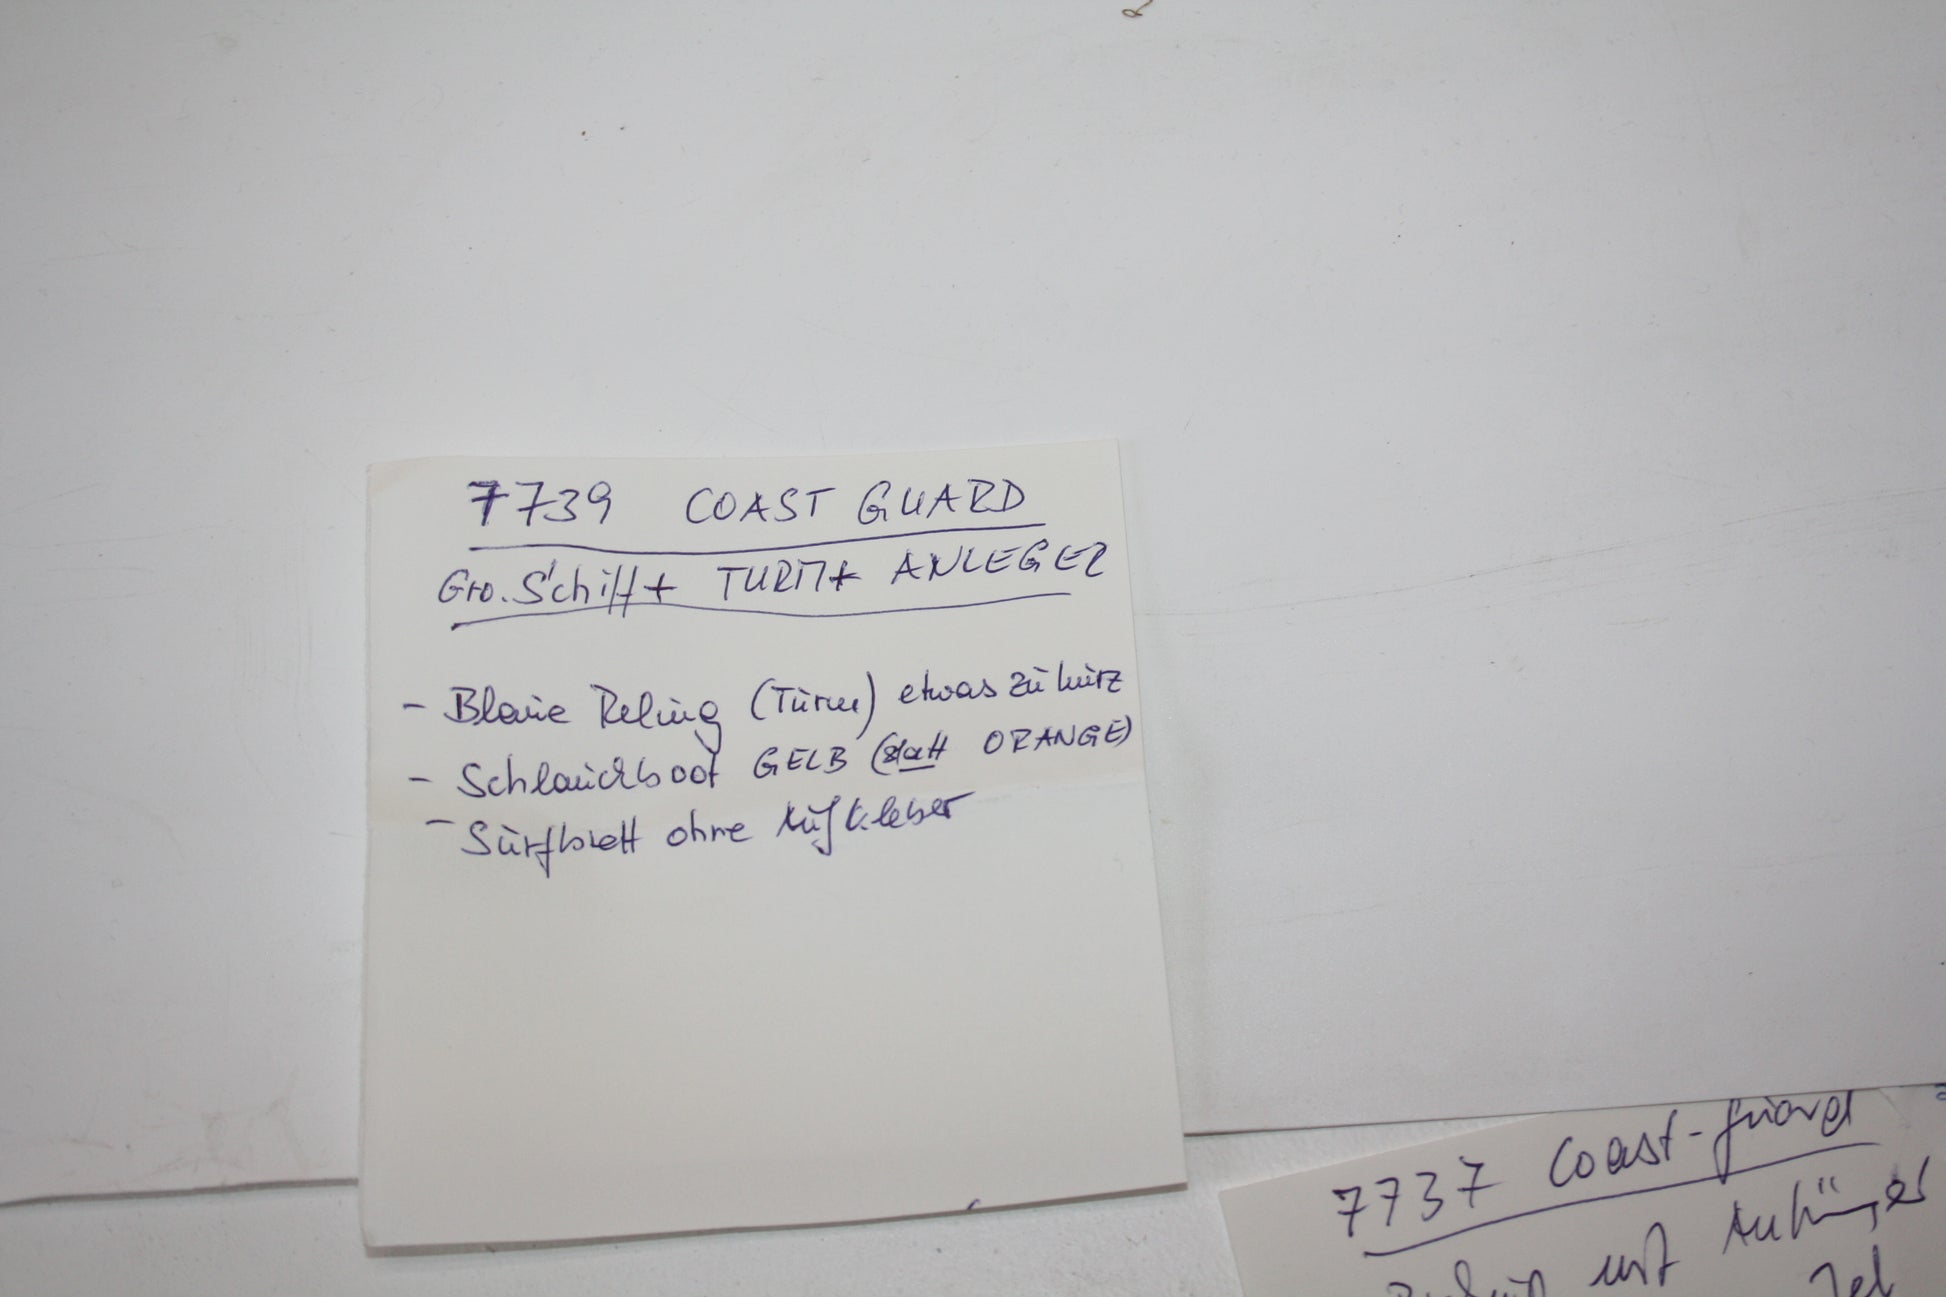 7739 COAST GUARD
Gro. Schiff + TURM + ANLEGER
- Blaue Reling (Turm) etwas zu kurz
- Schlauchboot GELB (statt ORANGE)
- Surfbrett ohne Aufkleber
7737 Coast-guard
mit Anhänger